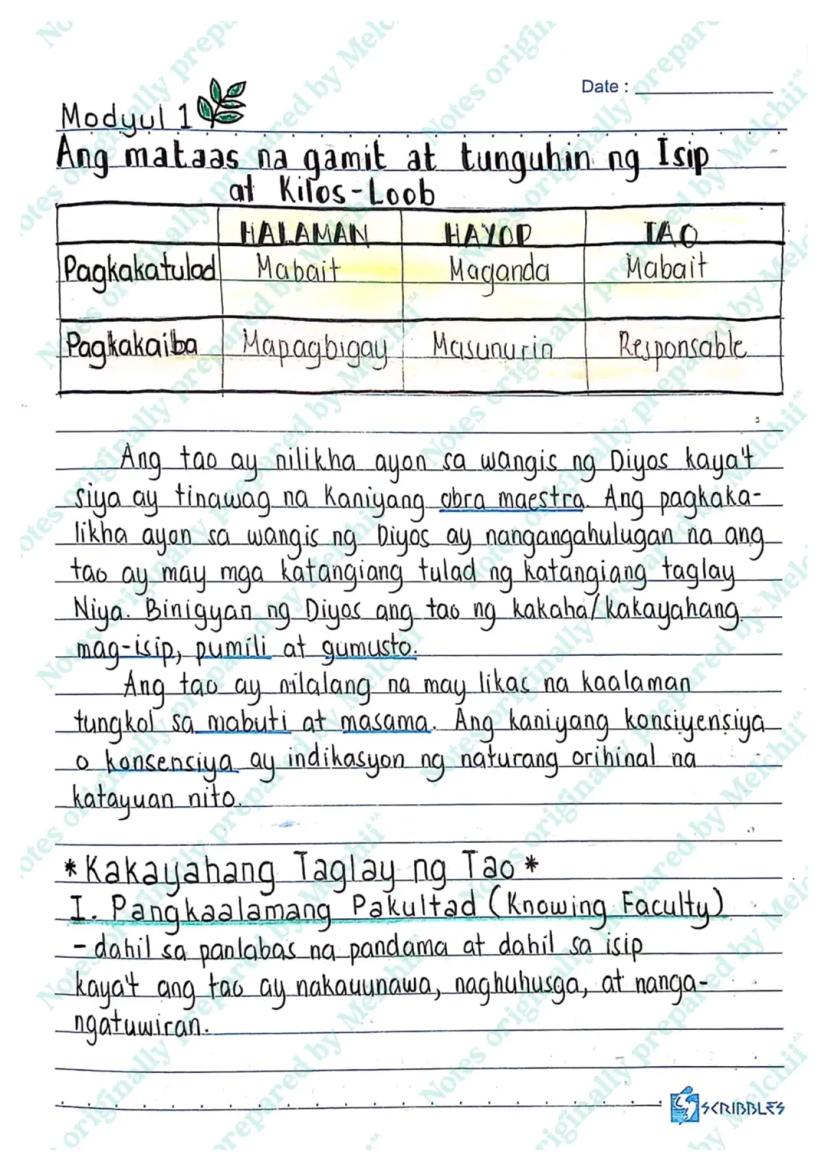 Date :
Modyul 1
Ang mataas na gamit at tunguhin ng Isip
at Kilos-Loob
HALAMAN HAYOP TAO
Pagkakatulad Mabait Maganda Mabait
Pagkakaiba Mapagbigay Masunurin Responsable
Ang tao ay nilikha ayon sa wangis ng Diyos kaya't
siya ay tinawag na Kaniyang obra maestra. Ang pagkaka-
likha ayon sa wangis ng Diyos ay nangangahulugan na ang
tao ay may mga katangiang tulad ng katangiang taglay
Niya. Binigyan ng Diyos ang tao ng kakaha/kakayahang
mag-isip, pumili at gumusto.
Ang tao ay nilalang na may likas na kaalaman
tungkol sa mabuti at masama. Ang kaniyang konsiyensiya
o konsensiya ay indikasyon ng naturang orihinal na
katayuan nito.
*Kakayahang Taglay ng Tao*
I. Pangkaalamang Pakultad (Knowing Faculty)
- dahil sa panlabas na pandama at dahil sa isip
kaya't ang tao ay nakauunawa, naghuhusga, at nanga-
ngatuwiran.
SCRIBBLES
Notes originally prepared by Melchii